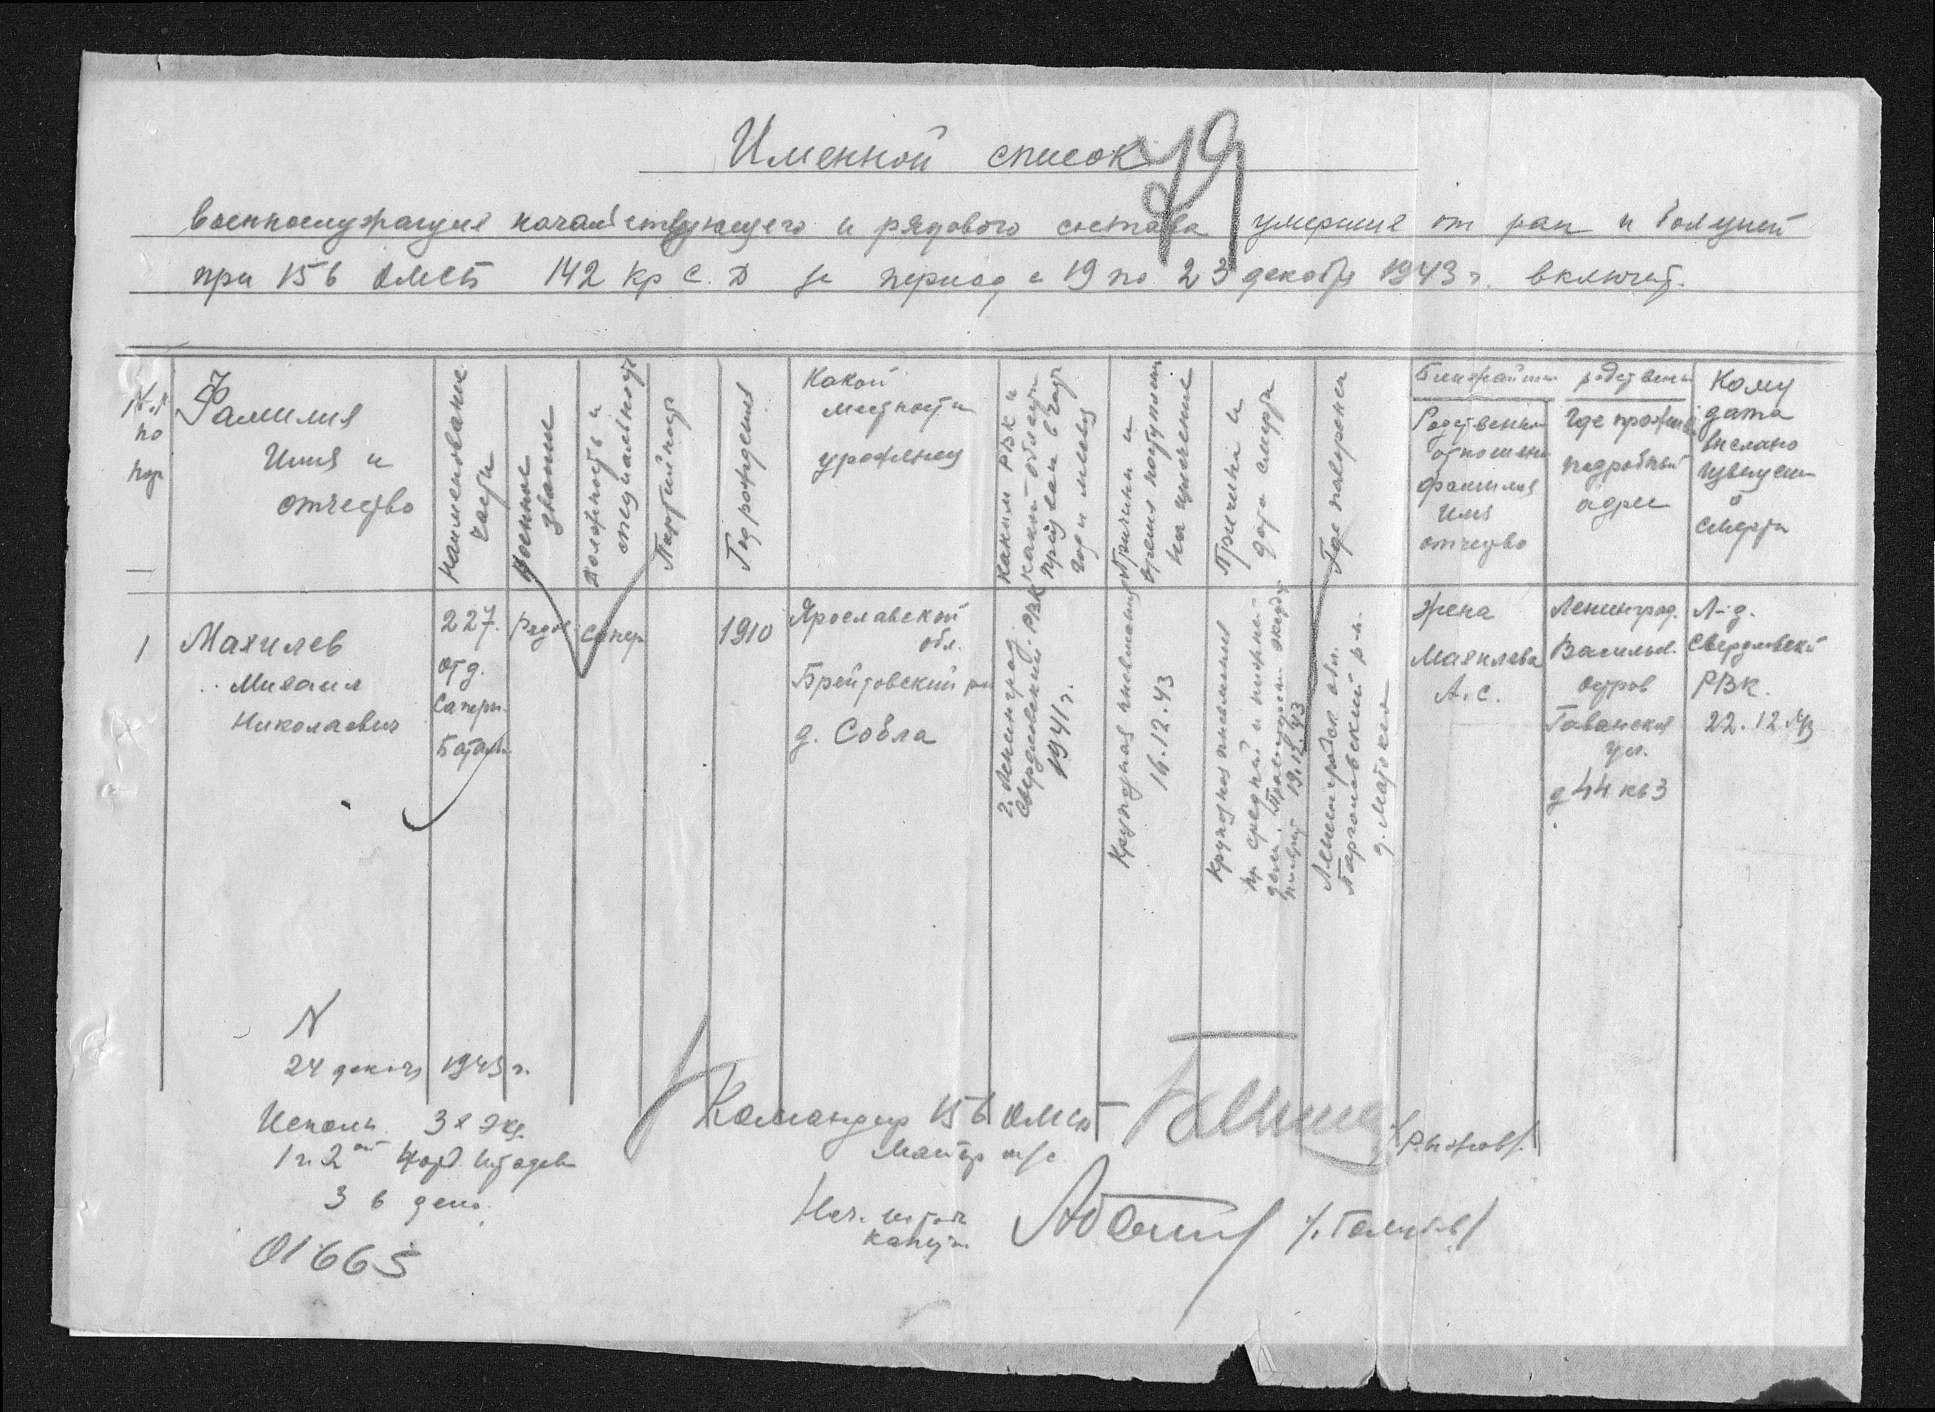 Именной список
79
военнослужащие начальствующего и рядового состава умершие от ран и болезней
при 156 ОМСБ 142 кр С.Д за период с 19 по 23 декабря 1943 г. включит.
№№
по
пор
Фамилия
Имя и
отчество
Наименование
части
Военное
звание
должность и
специальность
Партийность
Год рождения
Какой
местности
уроженец
Каким РВК и
какой области
призван в
год и месяц
Причина и
время поступлен
на излечение
Причина и
дата смерти
Где похоронен
Ближайшие родственники
Родственные
отношения
фамилия
Имя
отчество
Где прожив
подробный
адрес
Кому
дата
выслано
извещен
о
смерти
1
Махилев
Михаил
Николаевич
227.
отд.
Саперн.
Батал.
Рядов.
сапер
1910
Ярославской
обл.
Брейтовский рн
д. Собла
г. Ленинград.
Свердловский РВК
1941 г.
Крупозная пневмония
16.12.43
Крупозная пневмония
пр средней и нижней
19.12.43
Ленинградск обл.
Парголовский р-н.
д. Матокса
Жена
Махилева
А.С.
Ленинград.
Васильев.
остров
Гаванская
ул.
д 44 кв 3
Л-д.
Свердловский
РВК.
22.12.43
N
24 декабр 1943 г.
Исполн. 3х экз.
1 и 2
3 в дело.
01665
Командир 156 ОМСБ
Майор м/с
/Рыжов/.
Нач. штаба
капит.